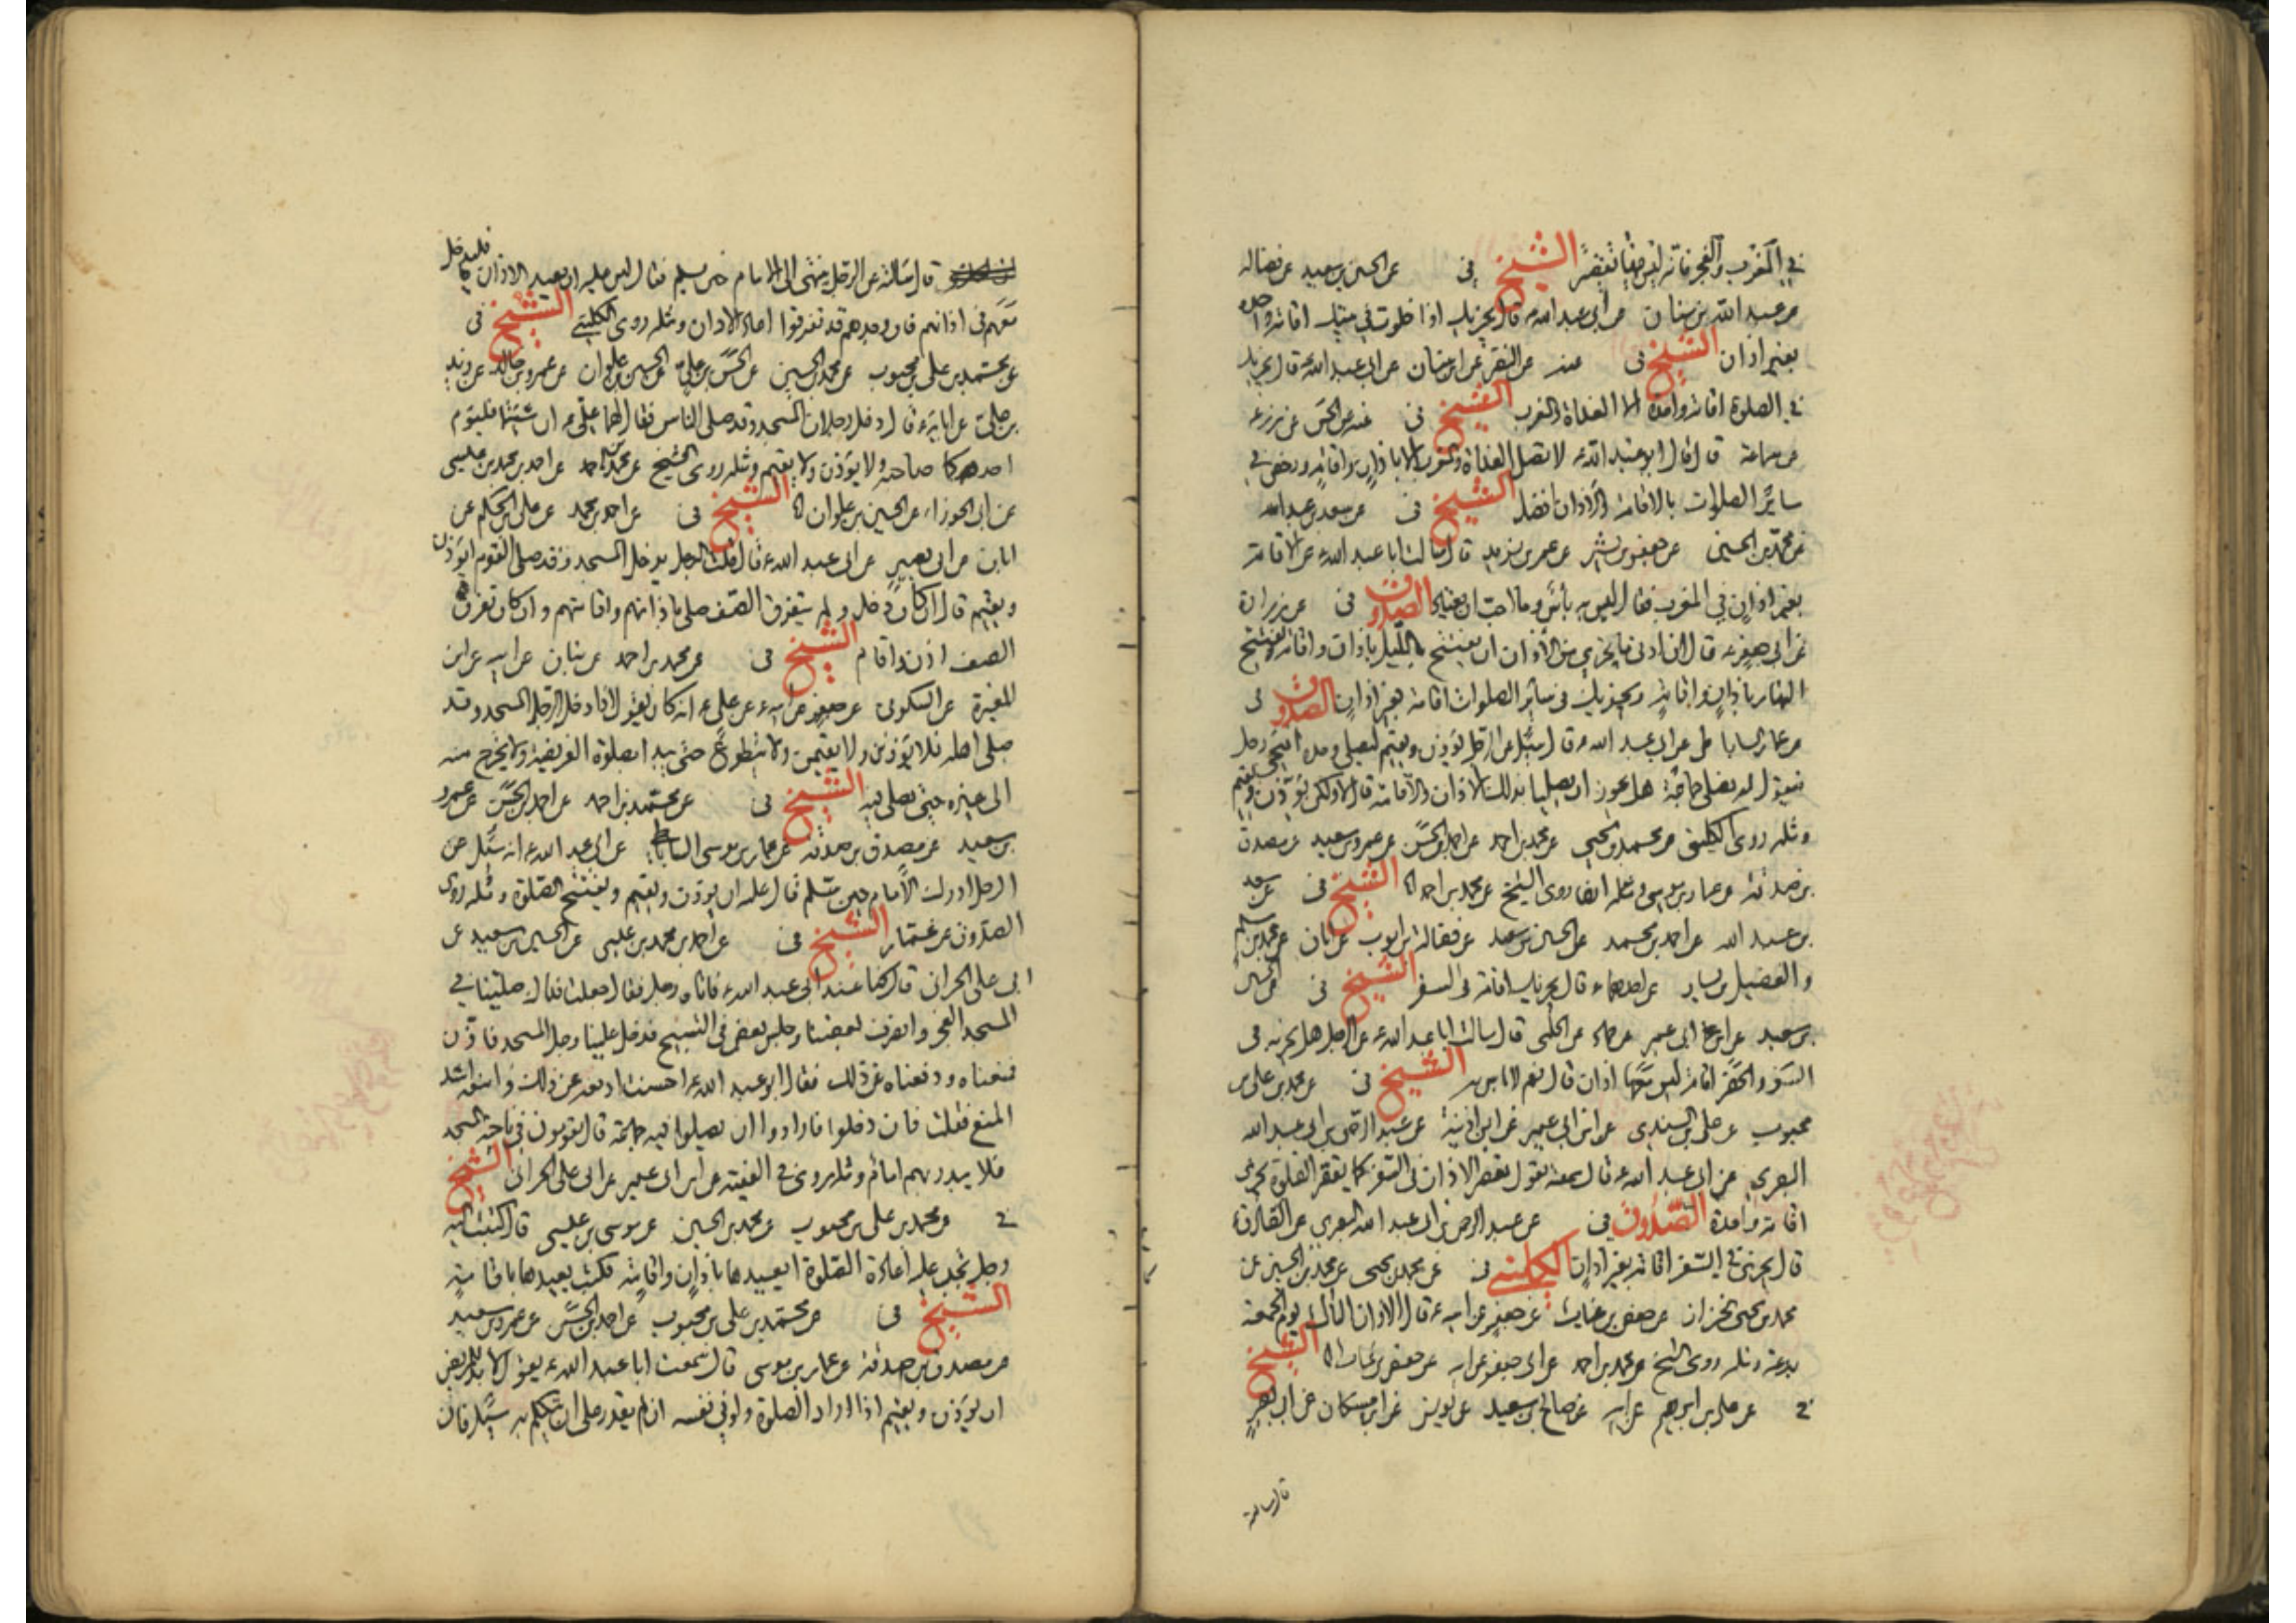 في المغرب والفجر فانه ليس فيهما تقصير الشيخ في عن الحسين بن سعيد عن فضاله
عن عبد الله بن سنان عن ابي عبد الله ع قال يجزيك اذا خلوت في بيتك اقامة واحدة
بغير اذان الشيخ في عنه عن النضر عن ابن سنان عن ابي عبد الله ع قال يجزيك
في الصلوة اقامة واحدة الا الغداة والمغرب الشيخ في عنه عن الحسن عن زرعه
عن سماعة قال قال ابو عبد الله ع لا تصل الغداة والمغرب الا باذان واقامة ورخص في
سائر الصلوات بالاقامة والاذان افضل الشيخ في عن سعد بن عبد الله
عن محمد بن الحسين عن جعفر بن بشير عن عمر بن يزيد قال سالت ابا عبد الله ع عن الاقامة
بغير اذان في المغرب فقال ليس به بأس وما احب ان يعتاد الصدوق في عن زرارة
عن ابي جعفر ع قال ان ادنى ما يجزي من الأذان ان يفتتح الليل باذان واقامة ويفتتح
النهار باذان واقامة ويجزيك في سائر الصلوات اقامة بغير اذان الصدوق في
عن عمار الساباطي عن ابي عبد الله ع قال سئل عن الرجل يؤذن ويقيم ليصلي وحده فيجيء رجل
فيقول له نصلي جماعة هل يجوز ان يصليا بذلك الاذان والاقامة قال لا ولكن يؤذن ويقيم
ومثله روى الكليني عن محمد بن يحيى عن محمد بن احمد عن احمد بن الحسن عن عمرو بن سعيد عن مصدق
بن صدقة عن عمار بن موسى ومثله ايضا روى الشيخ عن محمد بن احمد الشيخ في عن سعد
بن عبد الله عن احمد بن محمد عن الحسين بن سعيد عن فضالة بن ايوب عن ابان عن محمد بن مسلم
والفضيل بن يسار عن احدهما ع قال يجزيك اقامة في السفر الشيخ في عن الحسين
بن سعيد عن ابن ابي عمير عن حماد عن الحلبي قال سالت ابا عبد الله ع عن الرجل هل يجزيه في
السفر والحضر اقامة ليس معها اذان قال نعم لا باس به الشيخ في عن محمد بن علي بن
محبوب عن علي بن السندي عن ابن ابي عمير عن ابن اذينة عن عبد الرحمن بن ابي عبد الله
البصري عن ابي عبد الله ع قال سمعته يقول يقصر الاذان في السفر كما يقصر الصلوة تجزي
اقامة واحدة الصدوق في عن عبد الرحمن بن ابي عبد الله البصري عن الصادق ع
قال يجزي في السفر اقامة بغير اذان الكليني في عن محمد بن يحيى عن محمد بن الحسين عن
محمد بن يحيى الخزاز عن حفص بن غياث عن جعفر عن ابيه ع قال الاذان الثالث يوم الجمعة
بدعة ومثله روى الشيخ عن محمد بن احمد عن ابي جعفر عن ابيه عن حفص بن غياث الشيخ
في عن علي بن ابراهيم عن ابيه عن صالح بن سعيد عن يونس عن ابن مسكان عن ابي بصير
قال سالته
قال سالته عن الرجل ينتهي الى الامام حين يسلم فقال ليس عليه ان يعيد الاذان فليدخل
معهم في اذانهم فان وجدهم قد تفرقوا اعاد الاذان ومثله روى الكليني الشيخ في
عن محمد بن علي بن محبوب عن محمد بن الحسين عن الحسن بن علي عن الحسين بن علوان عن عمرو بن خالد عن زيد
بن علي عن ابائه ع قال دخل رجلان المسجد وقد صلى الناس فقال لهما علي ع ان شئتما فليؤم
احدكما صاحبه ولا يؤذن ولا يقيم ومثله روى الشيخ عن محمد بن احمد عن احمد بن محمد بن عيسى
عن ابي الجوزاء عن الحسين بن علوان الشيخ في عن احمد بن محمد عن علي بن الحكم عن
ابان عن ابي بصير عن ابي عبد الله ع قال قلت الرجل يدخل المسجد وقد صلى القوم ايؤذن
ويقيم قال ان كان دخل ولم يتفرق الصف صلى باذانهم واقامتهم وان كان تفرق
الصف اذن واقام الشيخ في عن محمد بن احمد عن بنان عن ابيه عن ابن
المغيرة عن السكوني عن جعفر عن ابيه ع عن علي ع انه كان يقول اذا دخل الرجل المسجد وقد
صلى اهله فلا يؤذنن ولا يقيمن ولا يتطوع حتى يبدا بصلوة الفريضة ولا يخرج منه
الى غيره حتى يصلي فيه الشيخ في عن محمد بن احمد عن احمد بن الحسن عن عمرو
بن سعيد عن مصدق بن صدقة عن عمار بن موسى الساباطي عن ابي عبد الله ع انه سئل عن
الرجل ادرك الامام حين سلم قال عليه ان يؤذن ويقيم ويفتتح الصلوة ومثله روى
الصدوق عن عمار الشيخ في عن احمد بن محمد بن عيسى عن الحسين بن سعيد عن
ابي علي الحراني قال كنا عند ابي عبد الله ع فاتاه رجل فقال جعلت فداك صلينا في
المسجد الفجر وانصرف بعضنا وجلس بعض في التسبيح فدخل علينا رجل المسجد فاذن
فمنعناه ودفعناه عن ذلك فقال ابو عبد الله ع احسنت ادفعه عن ذلك وامنعه اشد
المنع فقلت فان دخلوا فارادوا ان يصلوا فيه جماعة قال يقومون في ناحية المسجد
فلا يبدر بهم امام ومثله روى في الفقيه عن ابن ابي عمير عن ابي علي الحراني الشيخ
في عن محمد بن علي بن محبوب عن محمد بن الحسين عن موسى بن عيسى قال كتبت اليه
رجل تجب عليه اعادة الصلوة ايعيدها باذان واقامة فكتب يعيدها باقامة
الشيخ في عن محمد بن علي بن محبوب عن احمد بن الحسن عن عمرو بن سعيد
عن مصدق بن صدقة عن عمار بن موسى قال سمعت ابا عبد الله ع يقول لا بد للمريض
ان يؤذن ويقيم اذا اراد الصلوة ولو في نفسه ان لم يقدر على ان يتكلم به سئل فان